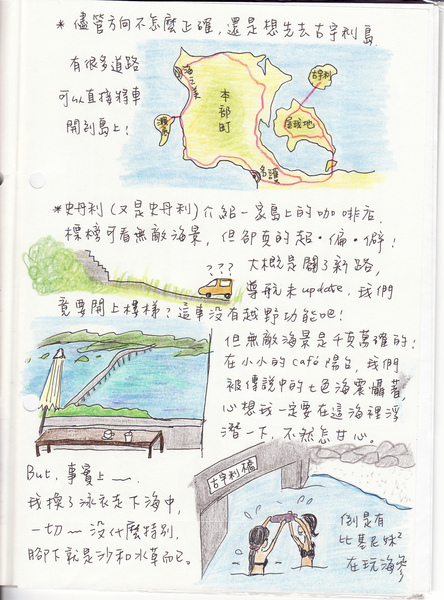 * 儘管方向不怎麼正確,還是想先去古宇利島
有很多道路
可以直接將車
開到島上!
海之美
本部町
瀨底島
古宇利
屋我地
名護
* 史丹利(又是史丹利)介紹一家島上的咖啡店.
標榜可看無敵海景,但卻真的超·偏·僻!
???
大概是開了新路,
導航未update.我們
竟要開上樓梯?這車沒有越野功能吧!
但無敵海景是千真萬確的!
在小小的café陽台,我們
被傳說中的七色海震懾著,
心想我一定要在這海裡浮
潛一下.不然怎甘心。
But.事實上~~.
我換了泳衣走下海中,
一切~沒什麼特別.
腳下就是沙和水草而已。
古宇利橋
倒是有
比基尼妹²
在玩海參